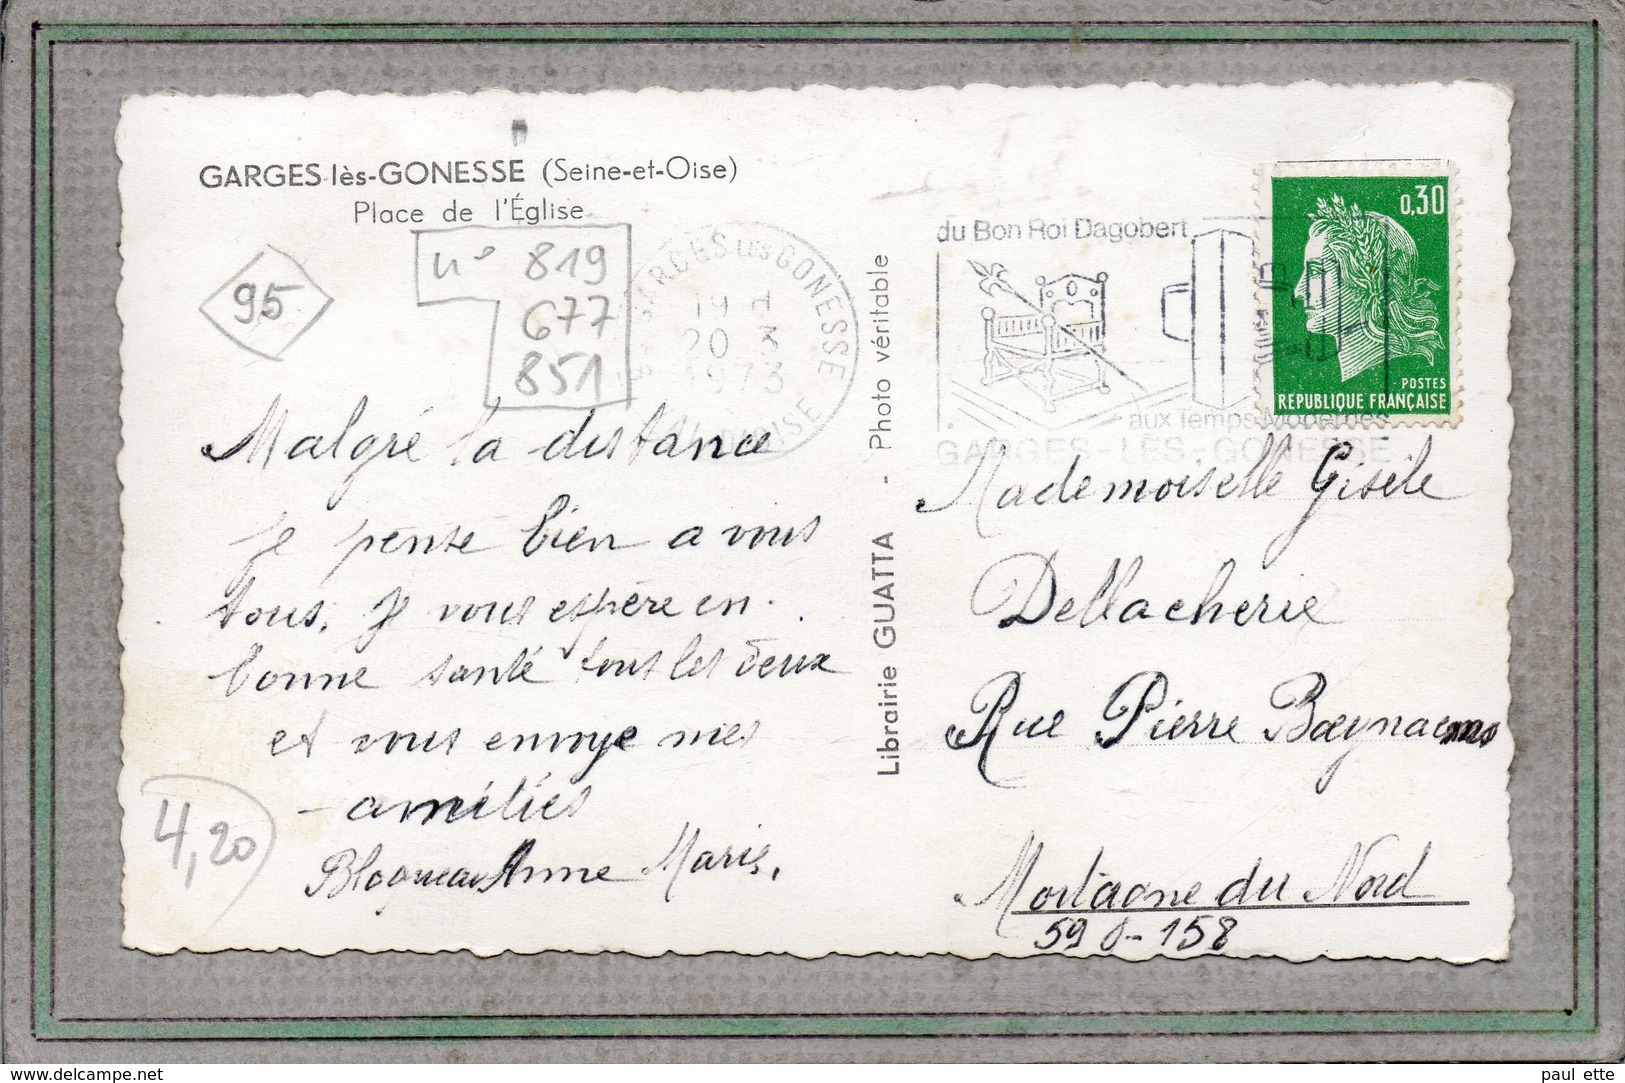 GARGES-lès-GONESSE (Seine-et-Oise)
Place de l'Église
95
n° 819
677
851
GARGES LES GONESSE
19 H
20 3
1973
VAL D'OISE
du Bon Roi Dagobert
aux Temps Modernes
GARGES-LÈS-GONESSE
0,30
POSTES
REPUBLIQUE FRANÇAISE
Malgré la distance
je pense bien a vous
tous. Je vous espère en
bonne santé tous les deux
et vous envoye mes
amitiés
Anne Marie.
4,20
Librairie GUATTA - Photo véritable
Mademoiselle Gisèle
Dellacherie
Rue Pierre
Mortagne du Nord
590-158
paul ette
delcampe.net